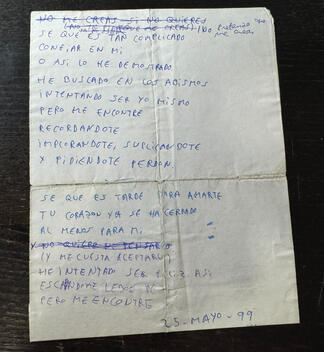 NO ME CREAS SI NO QUIERES
SE QUE ES TAN COMPLICADO
CONFIAR EN MI
O ASI LO HE DEMOSTRADO
HE BUSCADO EN LOS ABISMOS
INTENTANDO SER YO MISMO
PERO ME ENCONTRE
RECORDANDOTE
IMPLORANDOTE, SUPLICANDOTE
Y PIDIENDOTE PERDON.
SE QUE ES TARDE PARA AMARTE
TU CORAZON YA SE HA CERRADO
AL MENOS PARA MI
(Y ME CUESTA ACEPTARLO)
HE INTENTADO SER ASI
LEJOS DE
PERO ME ENCONTRE
25-MAYO-99